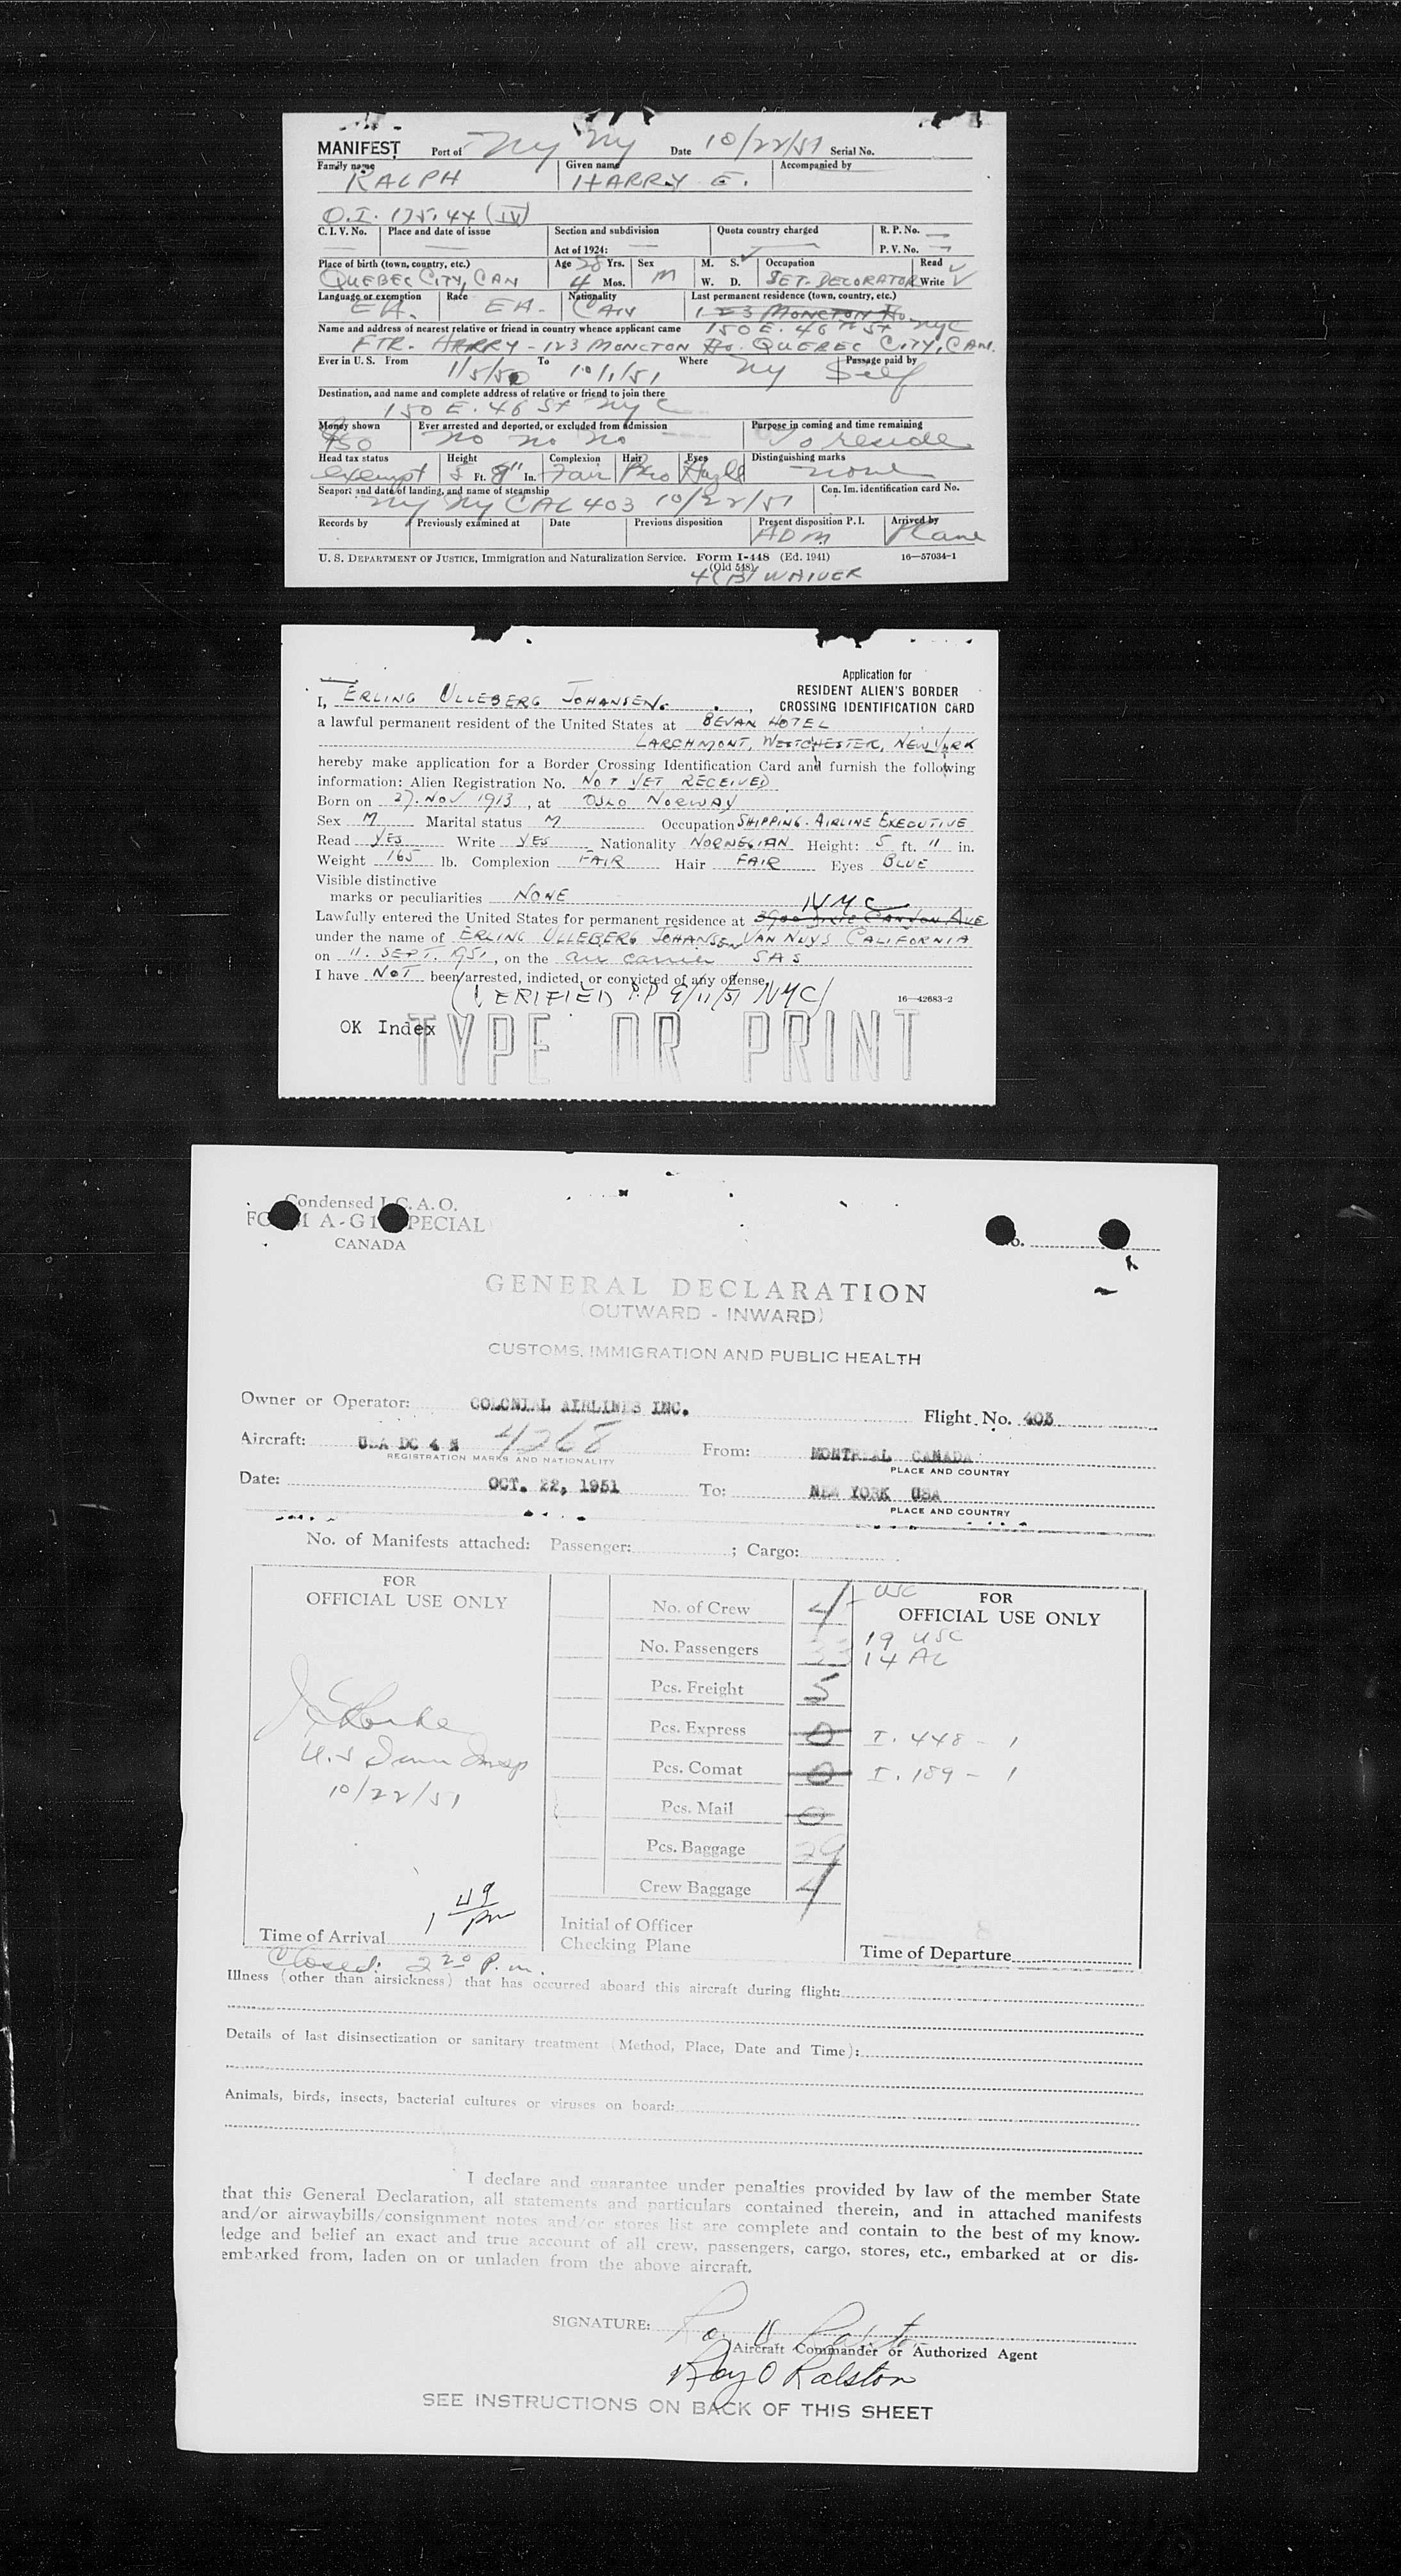 MANIFEST Port of NY NY Date 10/22/51 Serial No.
Family name Given name Accompanied by
RALPH HARRY E.
O.I. 175.44 (IV)
C. I. V. No. Place and date of issue Section and subdivision Quota country charged R. P. No.
Act of 1924: P. V. No.
Place of birth (town, country, etc.) Age 28 Yrs. Sex M. S. ✓ Occupation Read ✓
QUEBEC CITY, CAN 4 Mos. M W. D. SET-DECORATOR Write ✓
Language or exemption Race Nationality Last permanent residence (town, country, etc.)
EH. EH. CAN 123 MONCTON Ro.
Name and address of nearest relative or friend in country whence applicant came 150 E. 46TH ST NYC
FTR. HARRY - 123 MONCTON Ro. QUEBEC CITY, CAN.
Ever in U. S. From To Where Passage paid by
1/5/50 10/1/51 NY Self
Destination, and name and complete address of relative or friend to join there
150 E. 46 St NYC
Money shown Ever arrested and deported, or excluded from admission Purpose in coming and time remaining
$50 no no no To reside
Head tax status Height Complexion Hair Eyes Distinguishing marks
exempt 5 Ft. 8" In. Fair Bro Hazle none
Seaport and date of landing, and name of steamship Con. Im. identification card No.
NY NY CAL 403 10/22/51
Records by Previously examined at Date Previous disposition Present disposition P. I. Arrived by
ADM Plane
U. S. DEPARTMENT OF JUSTICE, Immigration and Naturalization Service. Form I-448 (Ed. 1941) 16—57034-1
(Old 548)
4(B) WAIVER
Application for
RESIDENT ALIEN'S BORDER
I, ERLING ULLEBERG JOHANSEN. , CROSSING IDENTIFICATION CARD
a lawful permanent resident of the United States at BEVAN HOTEL
LARCHMONT, WESTCHESTER, NEW YORK
hereby make application for a Border Crossing Identification Card and furnish the following
information: Alien Registration No. NOT YET RECEIVED
Born on 27. NOV 1913, at OSLO NORWAY
Sex M Marital status M Occupation SHIPPING-AIRLINE EXECUTIVE
Read YES Write YES Nationality NORWEGIAN Height: 5 ft. 11 in.
Weight 165 lb. Complexion FAIR Hair FAIR Eyes BLUE
Visible distinctive
marks or peculiarities NONE NYC
Lawfully entered the United States for permanent residence at 3900 DIXIE CANYON AVE
under the name of ERLING ULLEBERG JOHANSEN VAN NUYS CALIFORNIA
on 11. SEPT. 1951, on the air carrier SAS
I have NOT been arrested, indicted, or convicted of any offense.
(VERIFIED P.P 9/11/51 NYC) 16—42683-2
OK Index
TYPE OR PRINT
Condensed I. C. A. O.
FORM A-G1 SPECIAL
CANADA
No.
GENERAL DECLARATION
(OUTWARD - INWARD)
CUSTOMS, IMMIGRATION AND PUBLIC HEALTH
Owner or Operator: COLONIAL AIRLINES INC. Flight No. 403
Aircraft: USA DC 4 N 4268 From: MONTREAL CANADA
REGISTRATION MARKS AND NATIONALITY PLACE AND COUNTRY
Date: OCT. 22, 1951 To: NEW YORK USA
PLACE AND COUNTRY
No. of Manifests attached: Passenger: ; Cargo:
FOR
OFFICIAL USE ONLY
No. of Crew 4 - USC
FOR
OFFICIAL USE ONLY
No. Passengers 33 19 USC
14 AL
Pcs. Freight 5
Pcs. Express 0 I. 448 - 1
Pcs. Comat 0 I. 189 - 1
10/22/51
Pcs. Mail 0
Pcs. Baggage 29
Crew Baggage 4
Time of Arrival 1 49 pm
Initial of Officer
Checking Plane
Time of Departure
Closed: 2 20 P.m.
Illness (other than airsickness) that has occurred aboard this aircraft during flight:
Details of last disinsectization or sanitary treatment (Method, Place, Date and Time):
Animals, birds, insects, bacterial cultures or viruses on board:
I declare and guarantee under penalties provided by law of the member State
that this General Declaration, all statements and particulars contained therein, and in attached manifests
and/or airwaybills/consignment notes and/or stores list are complete and contain to the best of my know-
ledge and belief an exact and true account of all crew, passengers, cargo, stores, etc., embarked at or dis-
embarked from, laden on or unladen from the above aircraft.
SIGNATURE: Roy O Ralston
Aircraft Commander or Authorized Agent
Roy O Ralston
SEE INSTRUCTIONS ON BACK OF THIS SHEET